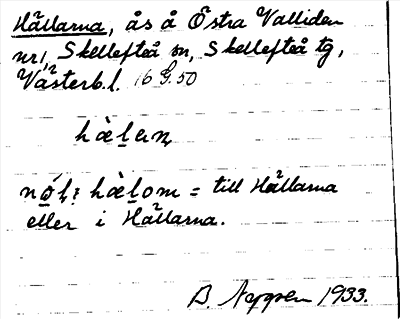 Hällarna, ås å Östra Valliden
nr 1, Skellefteå sn, Skellefteå tg,
Västerb.l. 16 G. 50
till Hällarna
eller i Hällarna.
1933.